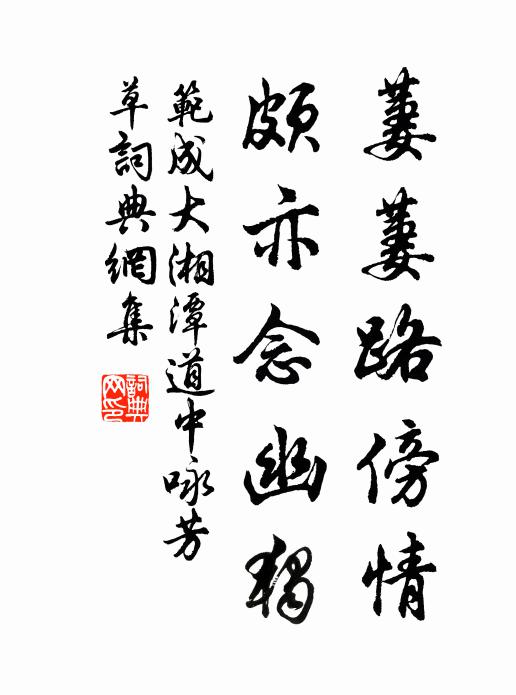 萋萋路傍情
頗亦念幽獨
範成大湘潭道中咏芳
草詞典網集
詞典网印